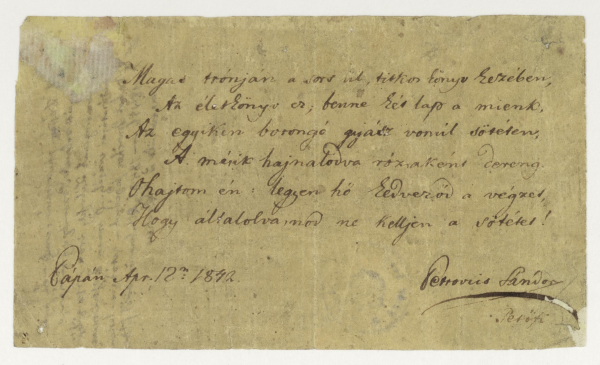 Magas trónján a sors ül, titkos könyv kezében,
Az életkönyv ez; benne két lap a mienk,
Az egyikén borongó gyász vonúl sötéten,
A másik hajnalodva rózsaként dereng.
Ohajtom én: legyen hó kedveződ a végzet,
Hogy általolvasnod ne kelljen a sötétet!
Pápán Apr. 12n 1842
Petrovics Sándor
Petőfi